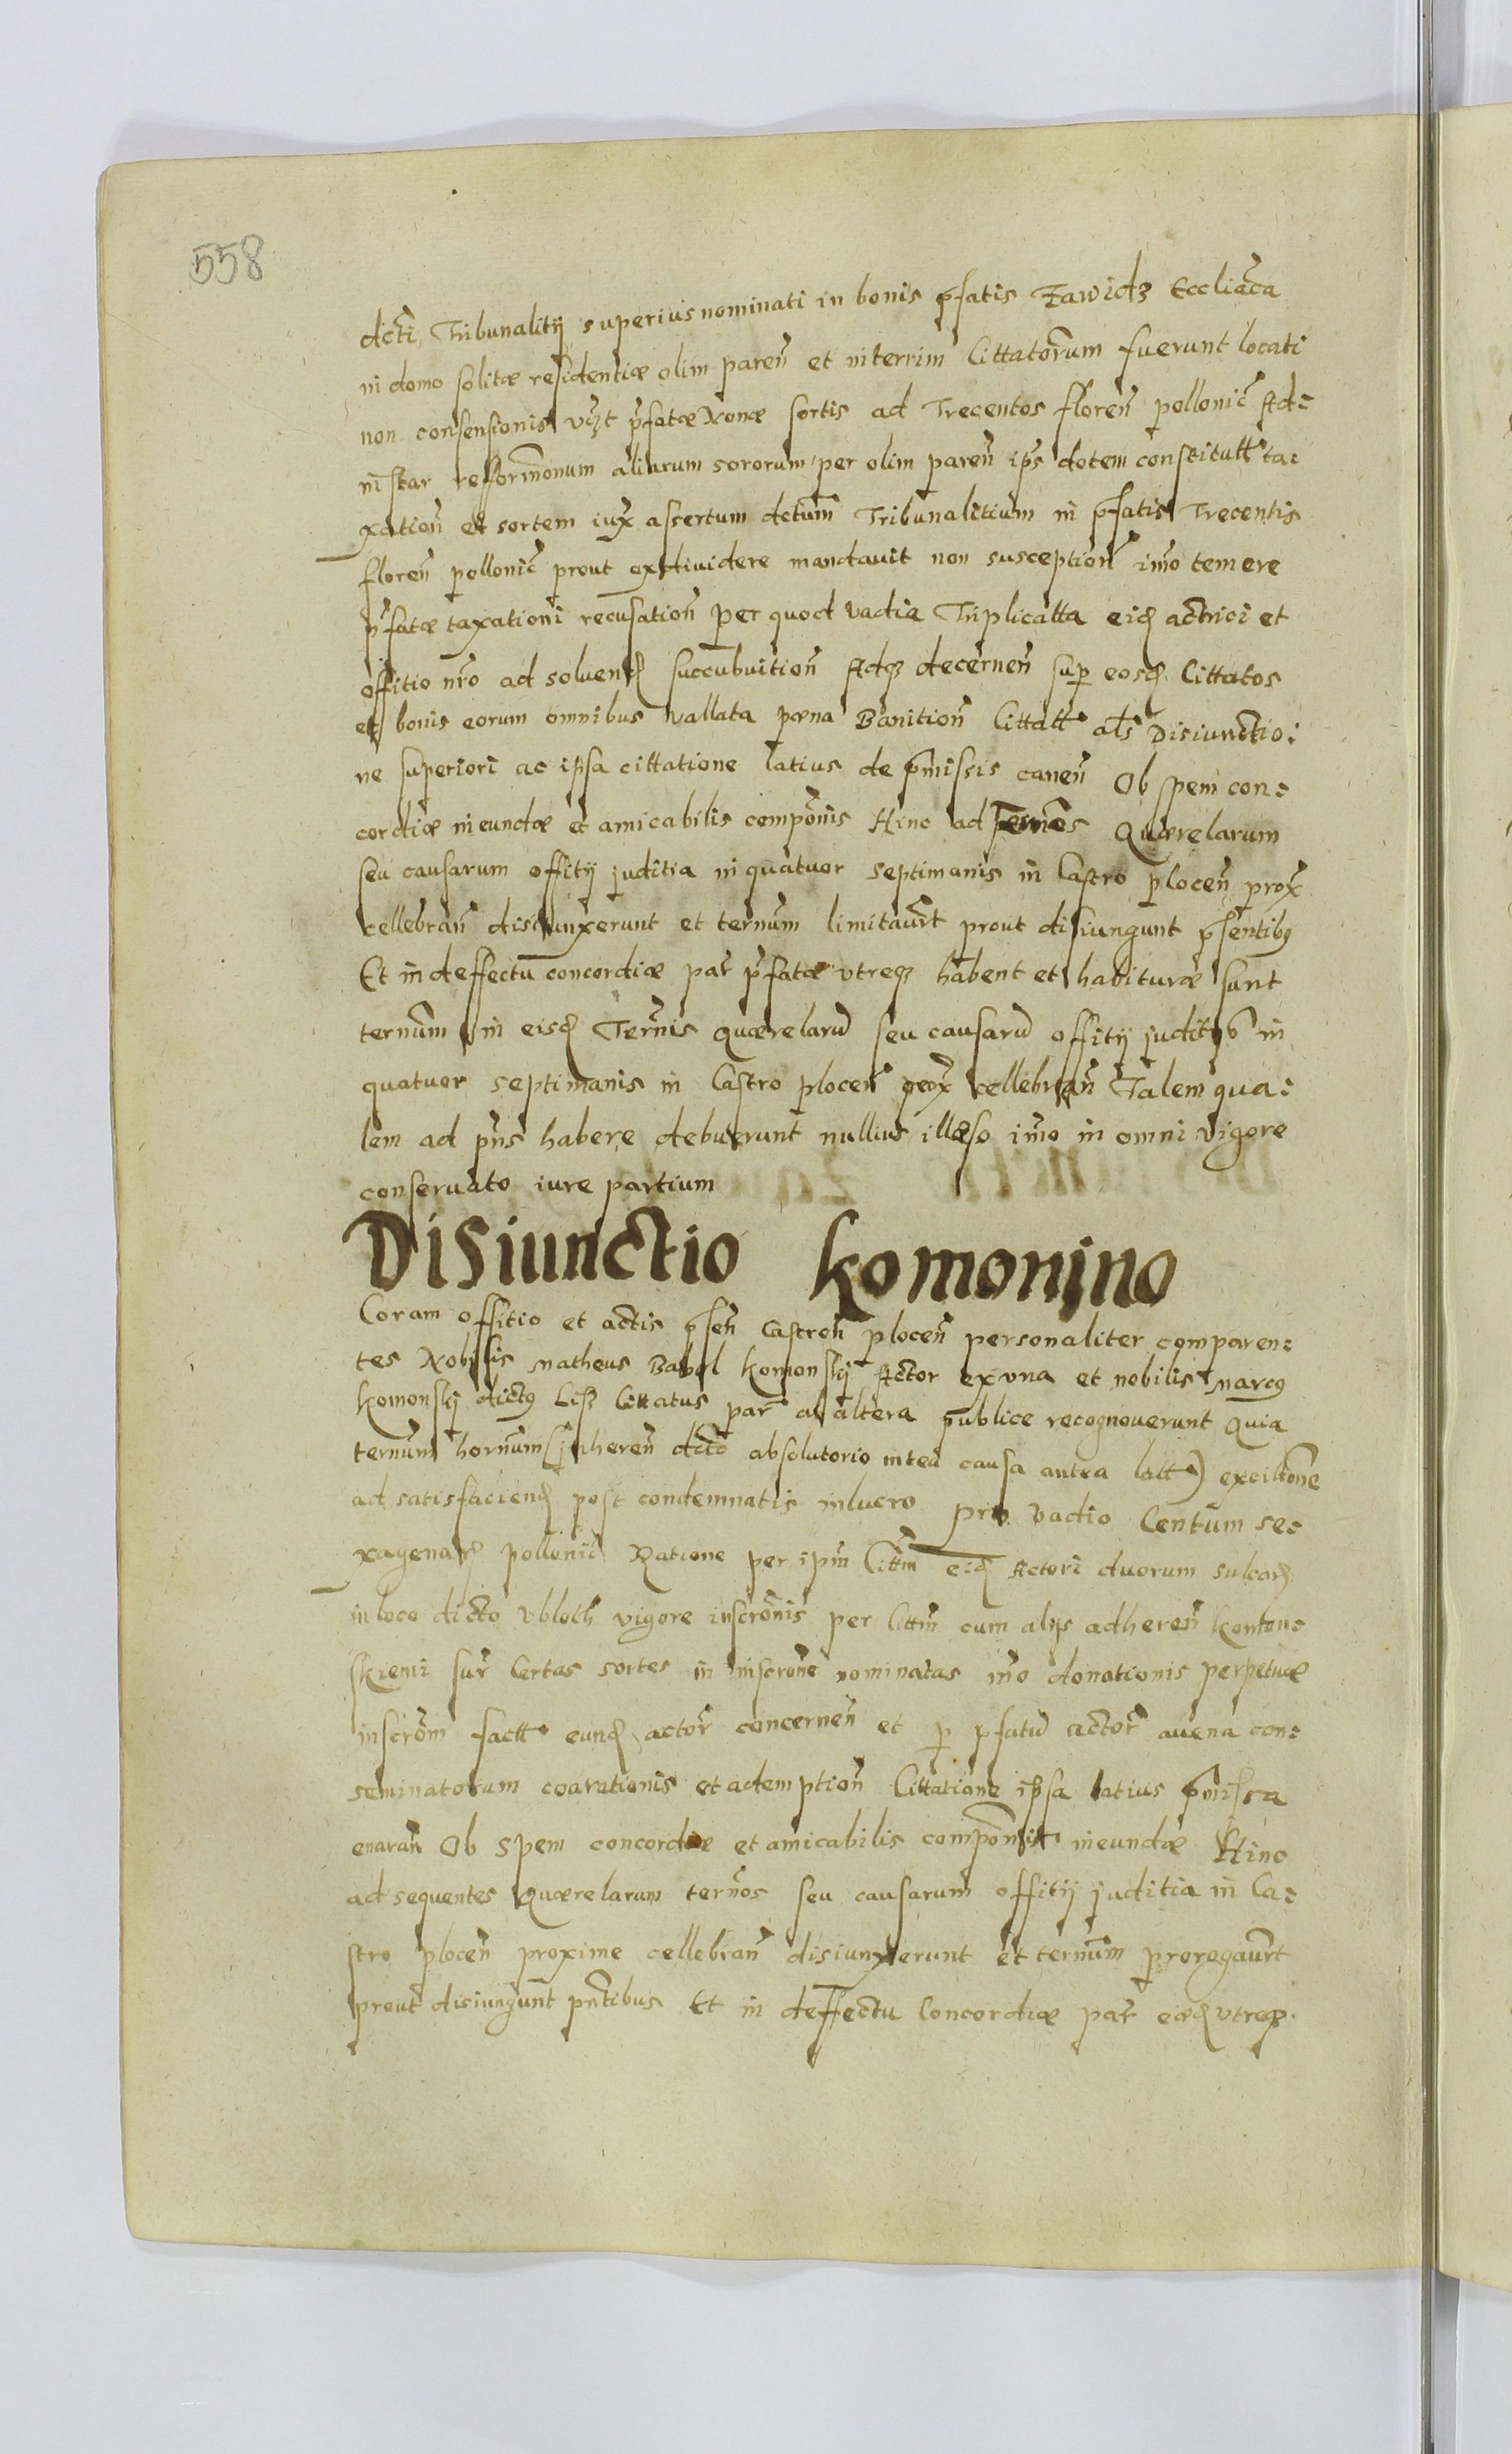 558
dcti Tribunalitij superius nominati in bonis pfatis Zawidz Eccliāca
in domo solitæ residentiæ olim pareñ et niterrim Cittatorum fuerunt locati
non consensionis vczt pfatæ Nonæ sortis ad Trecentos floreñ pollonic Ad=
instar refformonum aliarum sororum per olim pareñ ips dotem constitutt ta=
xationẽ et sortem iux assertum dctum Tribunalitium in pfatis Trecentis
floreñ pollonic prout exdividere mandavit non susceptioñ imo temere
pfatæ taxationi recusatioñ per quod vadia Triplicatta eid actrici et
offitio nro ad solvend succubuitioñ Adqz decerneñ sup eosd Cittatos
et bonis eorum omnibus vallata pæna Banitioñ Cittatt als Disiunctio=
ne superiori ac ipsa cittatione latius de pmissis caneñ Ob spem con=
cordiæ ineundæ et amicabilis componis Hinc ad Ternos Quærelarum
seu causarum offitij juditia in quatuor septimanis in Castro ploceñ prox
cellebrañ disiunxerunt et ternum limitaurt prout disiungunt psentibus
Et in deffectu concordiæ par pfatæ utreqz habent et habituræ sunt
ternum in eisd Ternis quærelaru seu causaru offitij juditijs in
quatuor septimanis in Castro ploceñ prox cellebrañ Talem qua=
lem ad pns habere debuerunt nullius illæso imo in omni vigore
conservato iure partium
Disiunctio Komonino
Coram offitio et actis pseñ Castreñ ploceñ personaliter comparen=
tes Nobilis Matheus Babel Komonskij Actor ex una et nobilis Marcus
Komonskij dictus Lisz Cittatus par ab altera publice recognoverunt Quia
ternum hornum (inhereñ dcto absolutorio in tea causa antea latt) exciltone
ad satisfaciend post condemnatis in lucro pro vadio Centum se=
xagenard pollonic Ratione per ipm Cittm eid Actori duorum sulcard
in loco dicto Vbloth vigore inscronis per Cittm cum alijs adhereñ Komon=
skiemi sur certas sortes in inscrone nominatas imo donationis perpetuæ
inscrom factt eund actor concerneñ et p pfatu actor avena con=
seminatorum coarationis et ademptioñ Cittatione ipsa latius pmissa
enarañ Ob spem concordiæ et amicabilis componis ineundæ Hinc
ad sequentes Quærelarum ternos seu causarum offitij juditia in Ca=
stro ploceñ proxime cellebrañ disiunxerunt et ternum prorogaurt
prout disiungunt pntibus Et in deffectu Concordiæ par eæd utreqz